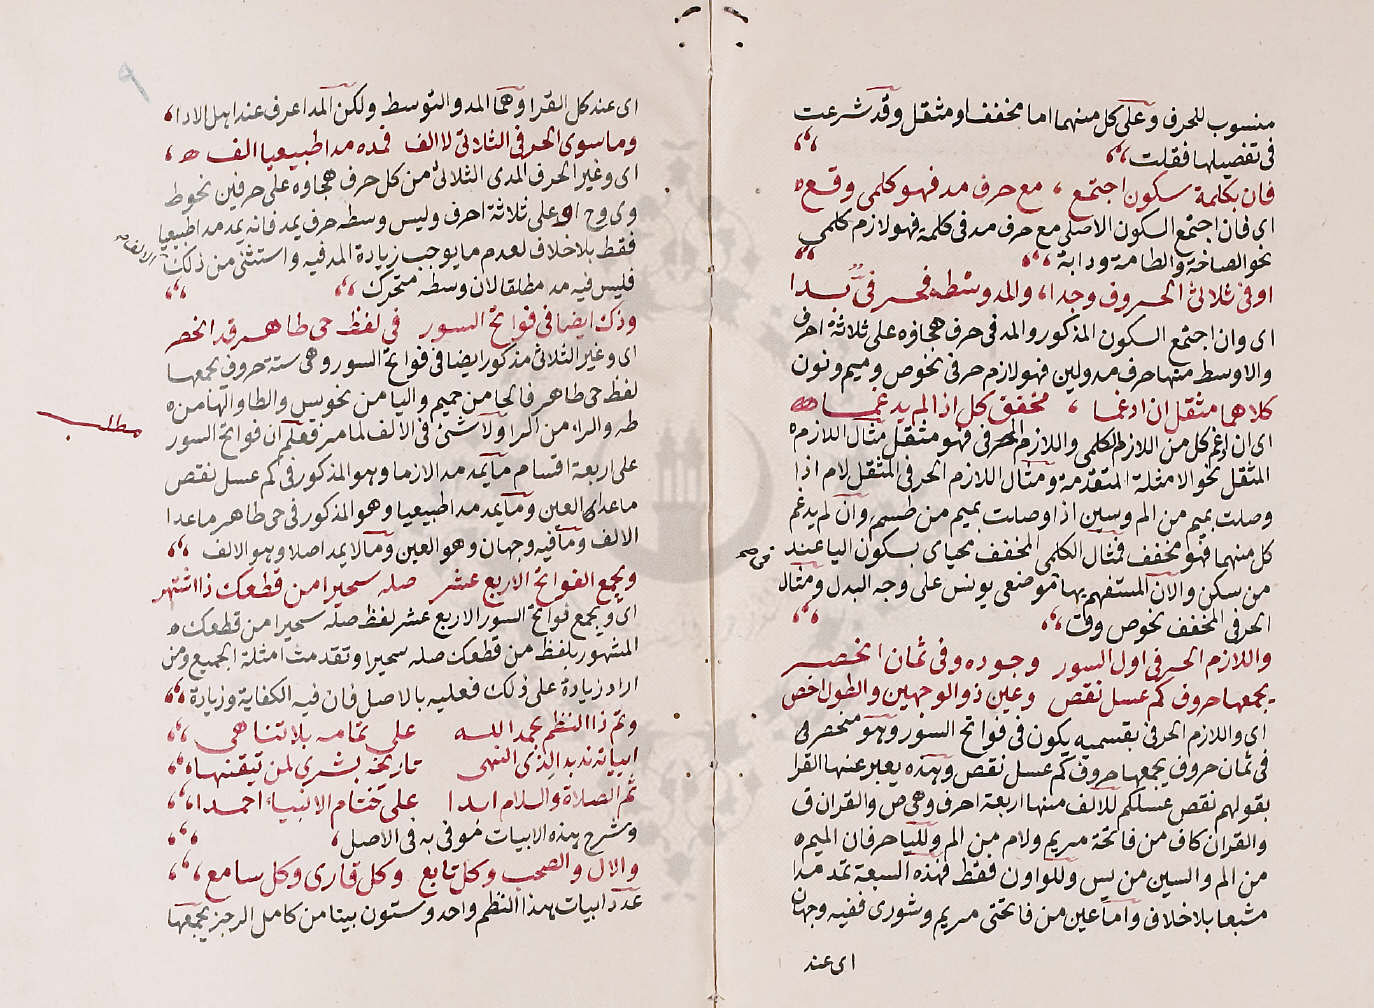 منسوب للحرف وعلى كل منهما اما مخفف او مثقل وقد شرعت
في تفصيلها فقلت
فان بكلمة سكون اجتمع ، مع حرف مد فهو كلمي وقع
اى فان اجتمع السكون الاصلي مع حرف مد في كلمة فهو لازم كلمي
نحو الصاخة والطامة ودابة
او في ثلاثي الحروف وجدا ، والمد وسطه فحرفي بدا
اى وان اجتمع السكون المذكور والمد في حرف هجاؤه على ثلاثة احرف
والاوسط منها حرف مد ولين فهو لازم حرفي نحو ص وميم ونون
كلاهما مثقل ان ادغما ، مخفف كل اذا لم يدغما
اى ان ادغم كل من اللازم الكلمي واللازم الحرفي فهو مثقل مثال اللازم
المثقل نحو الامثلة المتقدمة ومثال اللازم الحرفي المثقل لام اذا
وصلت بميم من الم وسين اذا وصلت بميم من طسم وان لم يدغم
كل منهما فهو مخفف فمثال الكلمي المخفف محياى بسكون اليا عند
من سكن والان المستفهم بها موضعي يونس على وجه البدل ومثال
في صح
الحرفي المخفف نحو ص وق
واللازم الحرفي اول السور وجوده وفي ثمان انحصر
يجمعها حروف كم عسل نقص وعين ذو الوجهين والطول اخص
اى واللازم الحرفي بقسميه يكون في فواتح السور وهو منحصر في
في ثمان حروف يجمعها حروف كم عسل نقص وهذه يعبر عنها القرا
بقولهم نقص عسلكم للالف منها اربعة احرف وهي ص والقران ق
والقران كاف من فاتحة مريم ولام من الم ولليا حرفان الميم
من الم والسين من يس وللواو ن فقط فهذه السبعة تمد مدا
مشبعا بلاخلاف واما عين من فاتحتي مريم وشورى ففيه وجهان
اى عند
اى عند كل القرا وهما المد والتوسط ولكن المد اعرف عند اهل الادا
وما سوى الحرف الثلاثي لا الف فمده مدا طبيعيا الف
اى وغير الحرف المدى الثلاثي من كل حرف هجاوه على حرفين نحو ط
وى وح او على ثلاثة احرف وليس وسطه حرف مد فانه يمد مدا طبيعيا
فقط بلاخلاف لعدم ما يوجب زيادة المد فيه واستثنى من ذلك
الالف
فليس فيه مد مطلقا لان وسطه متحرك
وذاك ايضا في فواتح السور في لفظ حي طاهر قد انحصر
اى وغير الثلاثي مذكور ايضا في فواتح السور وهي ستة حروف يجمعها
لفظ حي طاهر فالحا من حميم واليا من نحو يس والطا والها من
طه والرا من الرا ولا شئ في الالف لما مر فعلم ان فواتح السور
مطلب
على اربعة اقسام ما يمد مدا لازما وهو المذكور في كم عسل نقص
ما عدا العين وما يمد مدا طبيعيا وهو المذكور في حي طاهر ما عدا
الالف وما فيه وجهان وهو العين وما لا يمد اصلا وهو الالف
ويجمع الفواتح الاربع عشر صله سحيرا من قطعك ذا اشتهر
اى ويجمع فواتح السور الاربع عشر لفظ صله سحيرا من قطعك
المشهور بلفظ من قطعك صله سحيرا وتقدمت امثلة الجميع ومن
اراد زيادة على ذلك فعليه بالاصل فان فيه الكفاية وزيادة
وتم ذا النظم بحمد الله على تمامه بلا تناهي
ابياته ند بدا لذى النهى تاريخه بشرى لمن يتقنها
ثم الصلاة والسلام ابدا على ختام الانبياء احمدا
وشرح هذه الابيات موفى به في الاصل
والال والصحب وكل تابع وكل قارى وكل سامع
عدد ابيات هذا النظم واحد وستون بيتا من كامل الرجز يجمعها